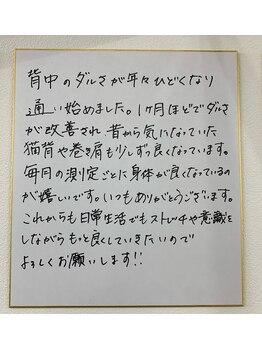 背中のダルさが年々ひどくなり
通い始めました。1ヶ月ほどでダルさ
が改善され 昔から気になっていた
猫背や巻き肩も少しずつ良くなっています。
毎月の測定ごとに身体が良くなっているの
が嬉しいです。いつもありがとうございます。
これからも日常生活でもストレッチや意識を
しながらもっと良くしていきたいので
よろしくお願いします!!